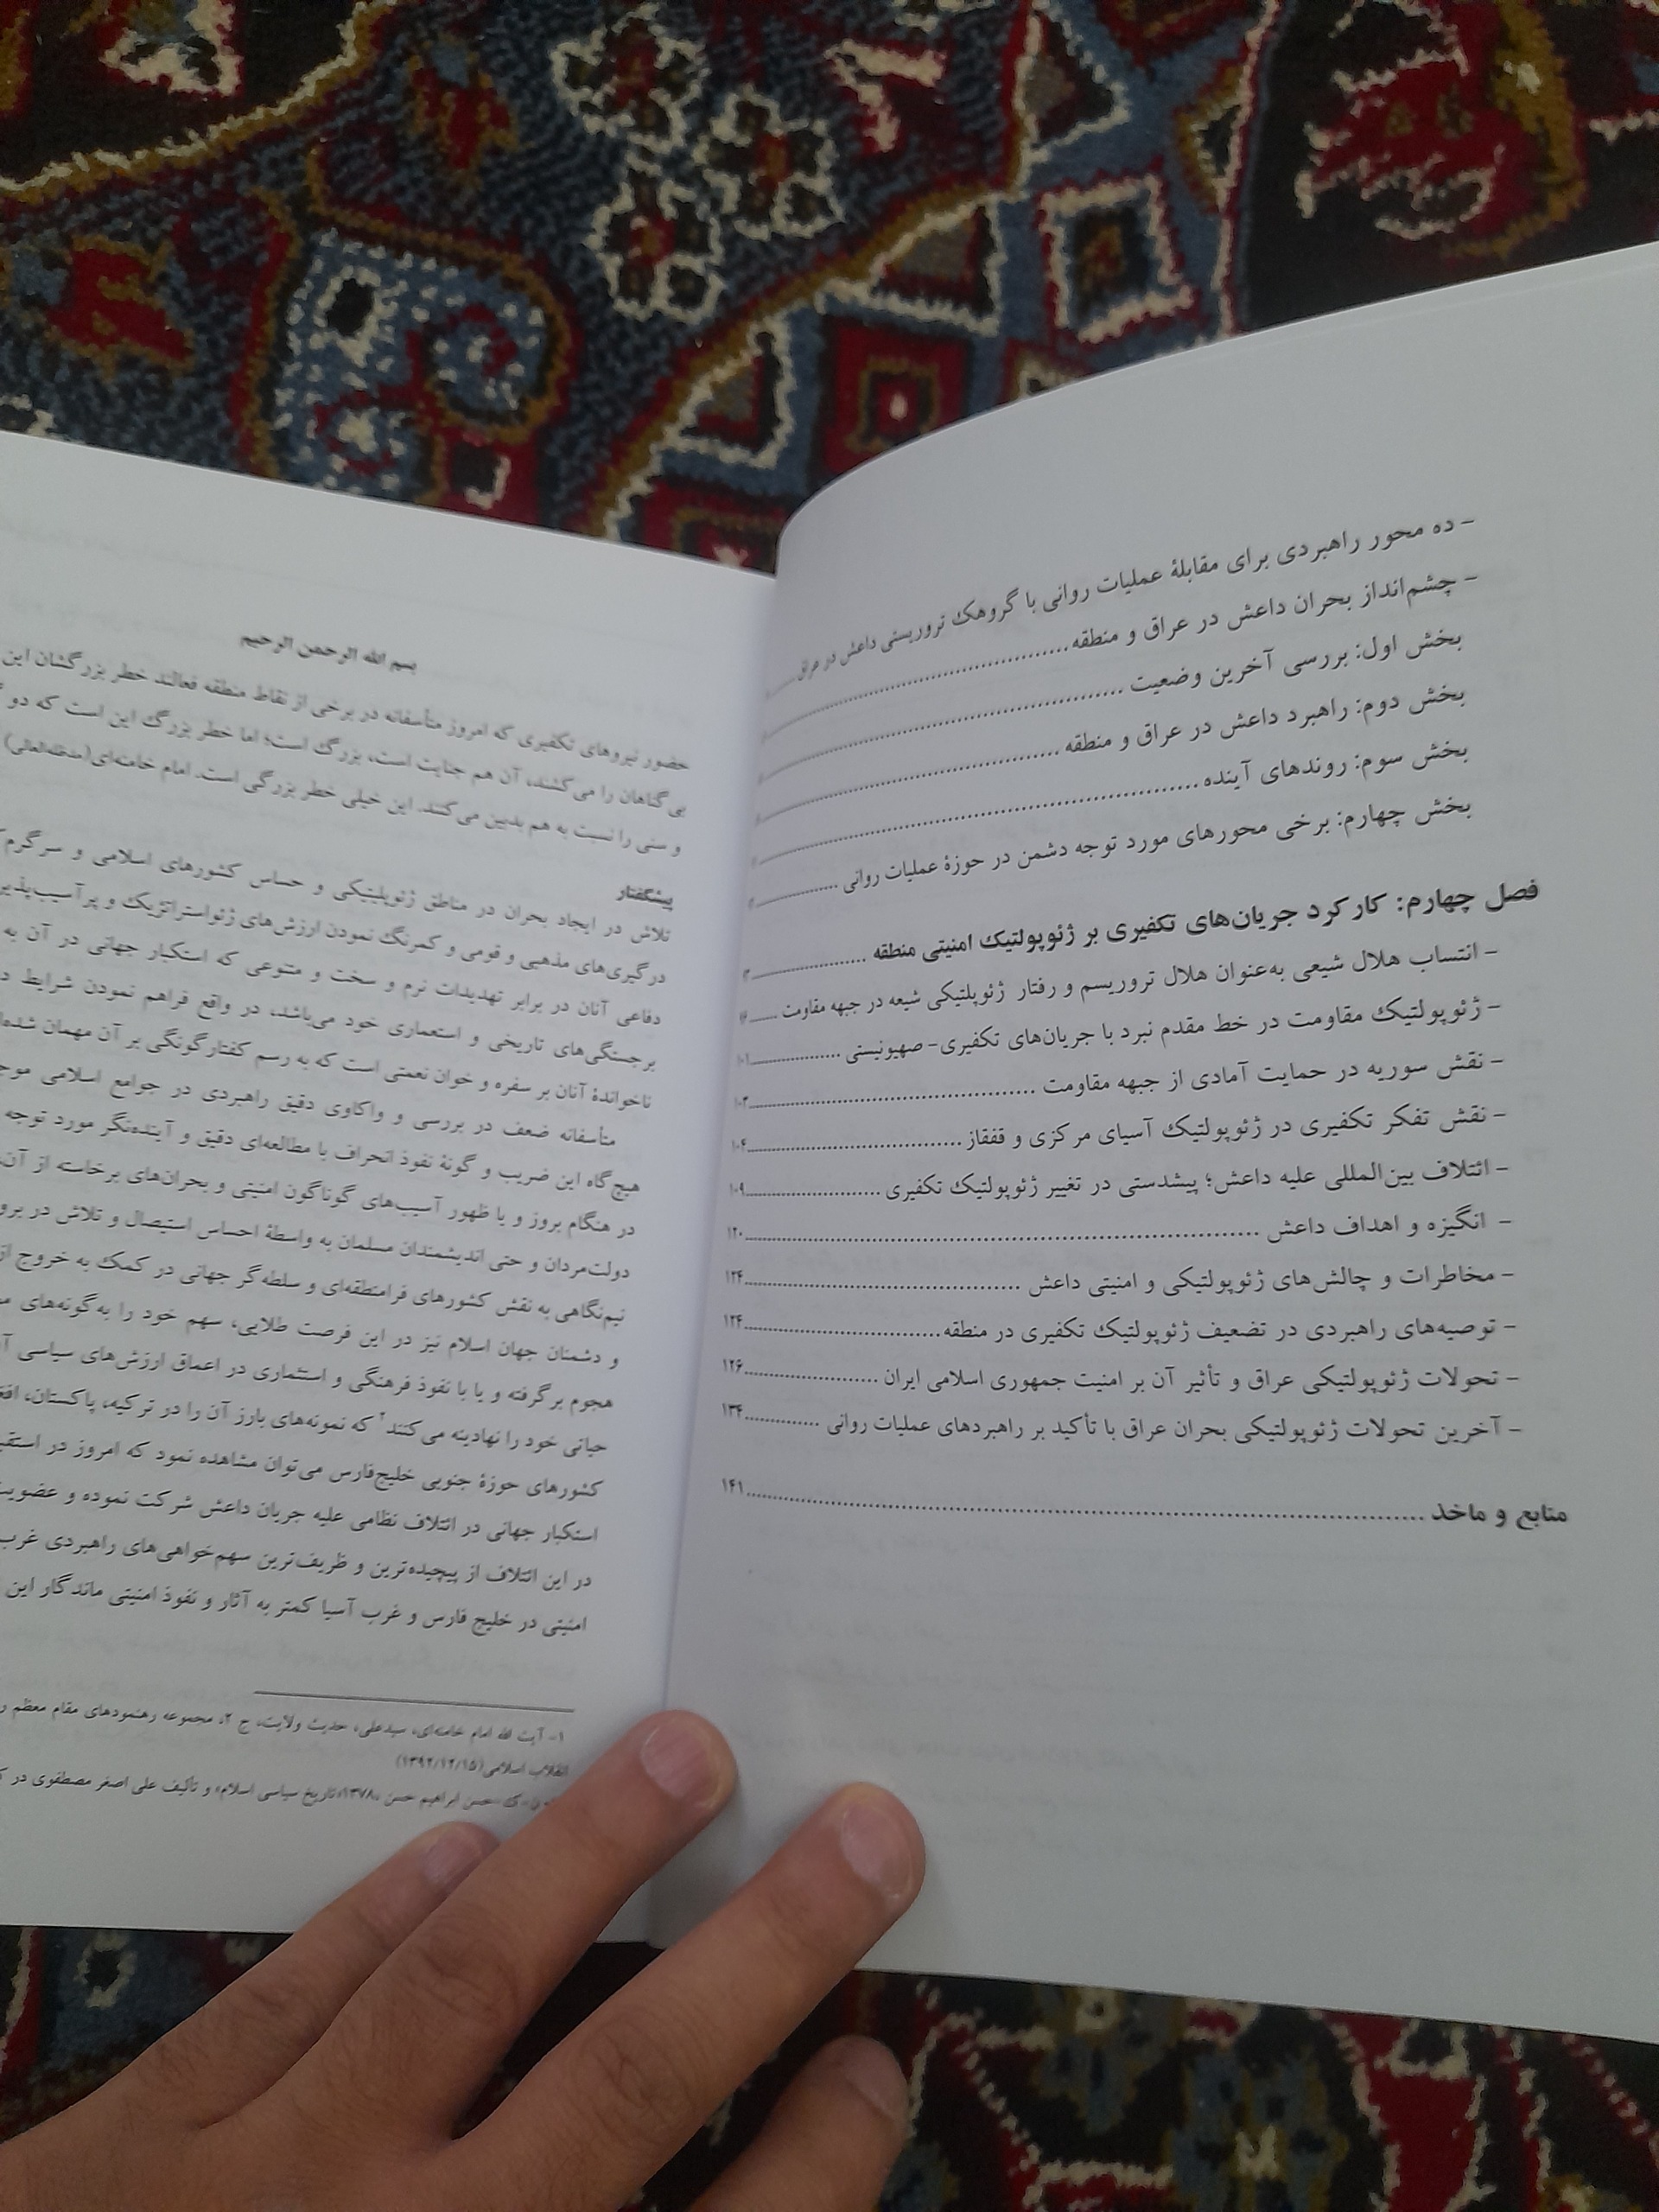 - ده محور راهبردی برای مقابلهٔ عملیات روانی با گروهک تروریستی داعش در عراق ......
- چشم‌انداز بحران داعش در عراق و منطقه ......
بخش اول: بررسی آخرین وضعیت ......
بخش دوم: راهبرد داعش در عراق و منطقه ......
بخش سوم: روندهای آینده ......
بخش چهارم: برخی محورهای مورد توجه دشمن در حوزهٔ عملیات روانی ......
فصل چهارم: کارکرد جریان‌های تکفیری بر ژئوپولتیک امنیتی منطقه ......
- انتساب هلال شیعی به‌عنوان هلال تروریسم و رفتار ژئوپلتیکی شیعه در جبهه مقاومت ......
- ژئوپولتیک مقاومت در خط مقدم نبرد با جریان‌های تکفیری- صهیونیستی ...... ۱۰۱
- نقش سوریه در حمایت آمادی از جبهه مقاومت ...... ۱۰۳
- نقش تفکر تکفیری در ژئوپولتیک آسیای مرکزی و قفقاز ...... ۱۰۴
- ائتلاف بین‌المللی علیه داعش؛ پیشدستی در تغییر ژئوپولتیک تکفیری ...... ۱۰۹
- انگیزه و اهداف داعش ...... ۱۲۰
- مخاطرات و چالش‌های ژئوپولتیکی و امنیتی داعش ...... ۱۲۴
- توصیه‌های راهبردی در تضعیف ژئوپولتیک تکفیری در منطقه ...... ۱۲۴
- تحولات ژئوپولتیکی عراق و تأثیر آن بر امنیت جمهوری اسلامی ایران ...... ۱۲۶
- آخرین تحولات ژئوپولتیکی بحران عراق با تأکید بر راهبردهای عملیات روانی ...... ۱۳۴
منابع و ماخذ ...... ۱۴۱
بسم الله الرحمن الرحیم
حضور نیروهای تکفیری که امروز متأسفانه در برخی از نقاط منطقه فعالند خطر بزرگشان این
بی‌گناهان را می‌کشند، آن هم جنایت است، بزرگ است؛ اما خطر بزرگ این است که دو
و سنی را نسبت به هم بدبین می‌کنند. این خیلی خطر بزرگی است. امام خامنه‌ای(مدظله‌العالی)
پیشگفتار
تلاش در ایجاد بحران در مناطق ژئوپلیتیکی و حساس کشورهای اسلامی و سرگرم
درگیری‌های مذهبی و قومی و کمرنگ نمودن ارزش‌های ژئواستراتژیک و پرآسیب‌پذیر
دفاعی آنان در برابر تهدیدات نرم و سخت و متنوعی که استکبار جهانی در آن به
برجستگی‌های تاریخی و استعماری خود می‌باشد، در واقع فراهم نمودن شرایط
ناخواندهٔ آنان بر سفره و خوان نعمتی است که به رسم کفتارگونگی بر آن مهمان شده‌ا
متأسفانه ضعف در بررسی و واکاوی دقیق راهبردی در جوامع اسلامی موج
هیچ‌گاه این ضریب و گونهٔ نفوذ انحراف با مطالعه‌ای دقیق و آینده‌نگر مورد توجه
در هنگام بروز و یا ظهور آسیب‌های گوناگون امنیتی و بحران‌های برخاسته از آن،
دولت‌مردان و حتی اندیشمندان مسلمان به واسطهٔ احساس استیصال و تلاش در برو
نیم‌نگاهی به نقش کشورهای فرامنطقه‌ای و سلطه‌گر جهانی در کمک به خروج از
و دشمنان جهان اسلام نیز در این فرصت طلایی، سهم خود را به‌گونه‌های
هجوم برگرفته و یا با نفوذ فرهنگی و استثماری در اعماق ارزش‌های سیاسی آ
حیاتی خود را نهادینه می‌کنند۲ که نمونه‌های بارز آن را در ترکیه، پاکستان، افغ
کشورهای حوزهٔ جنوبی خلیج‌فارس می‌توان مشاهده نمود که امروز در استقب
استکبار جهانی در ائتلاف نظامی علیه جریان داعش شرکت نموده و عضویت
در این ائتلاف از پیچیده‌ترین و ظریف‌ترین سهم‌خواهی‌های راهبردی غرب
امنیتی در خلیج فارس و غرب آسیا کمتر به آثار و نفوذ امنیتی ماندگار این
۱- آیت الله امام خامنه‌ای، سیدعلی، حدیث ولایت، ج ۲، مجموعه رهنمودهای مقام معظم ر
انقلاب اسلامی(۱۳۹۲/۱۲/۱۵)
حسن ابراهیم حسن «۱۳۷۸»تاریخ سیاسی اسلام» و تألیف علی اصغر مصطفوی در